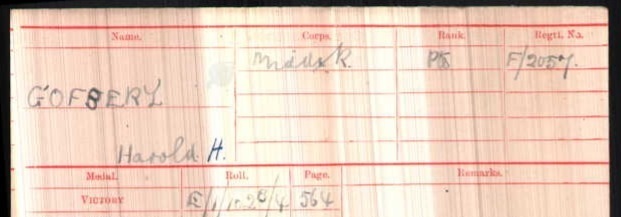 Name. Corps. Rank. Regtl. No.
Midd'x R. Pte F/2057.
GOFBERY
Harold H.
Medal. Roll. Page. Remarks.
VICTORY E/1/102B/4 564